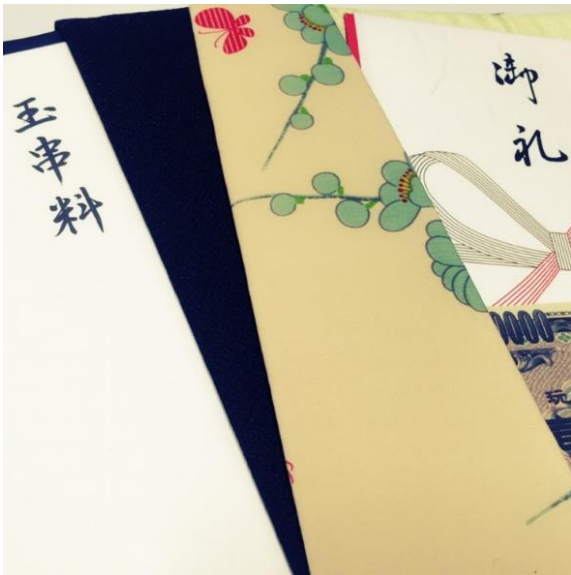 玉串料
御礼
0000
玩